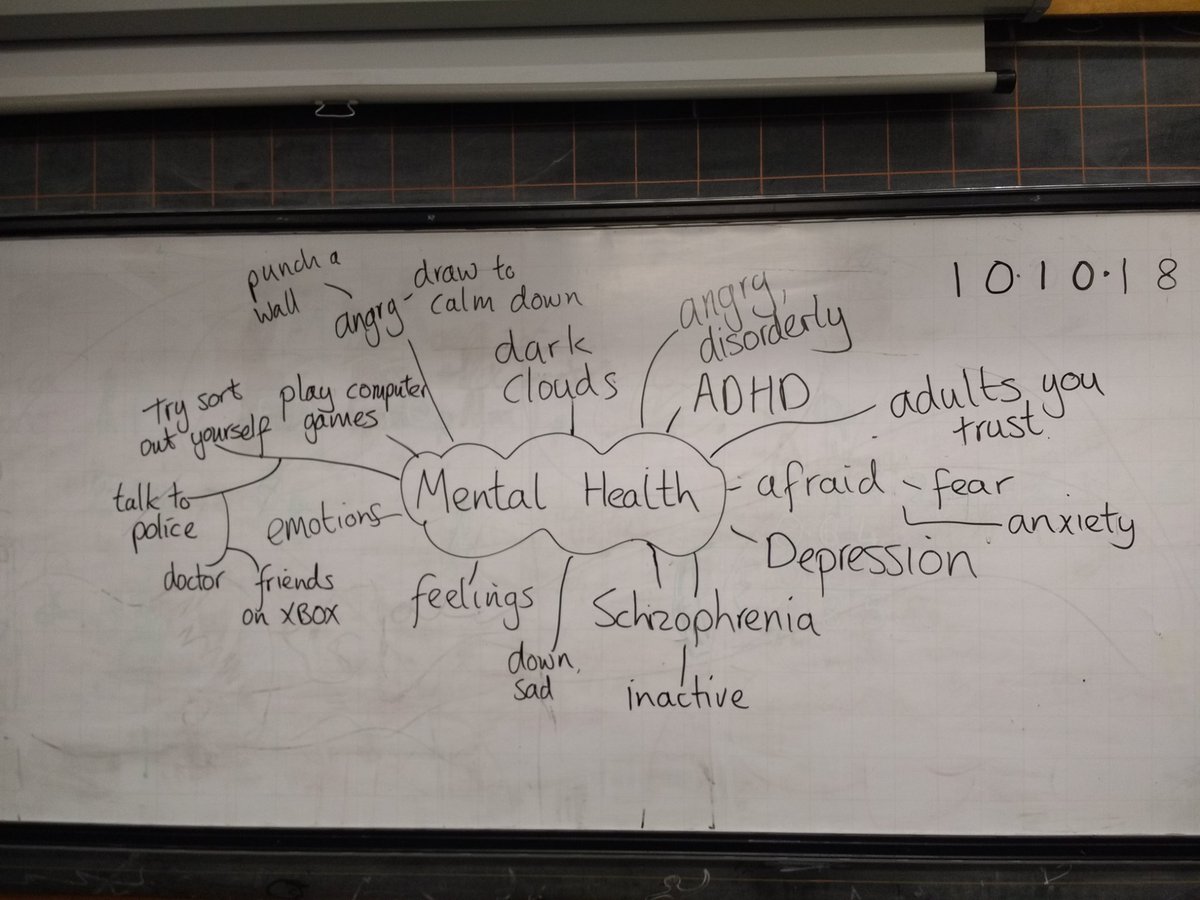 10.10.18
punch a
wall
angry
draw to
calm down
dark
clouds
angry,
disorderly
ADHD
adults you
trust.
try sort
out yourself
play computer
games
talk to
police
doctor
friends
on XBOX
emotions
Mental Health
afraid
fear
anxiety
Depression
feelings
down,
sad
Schizophrenia
inactive